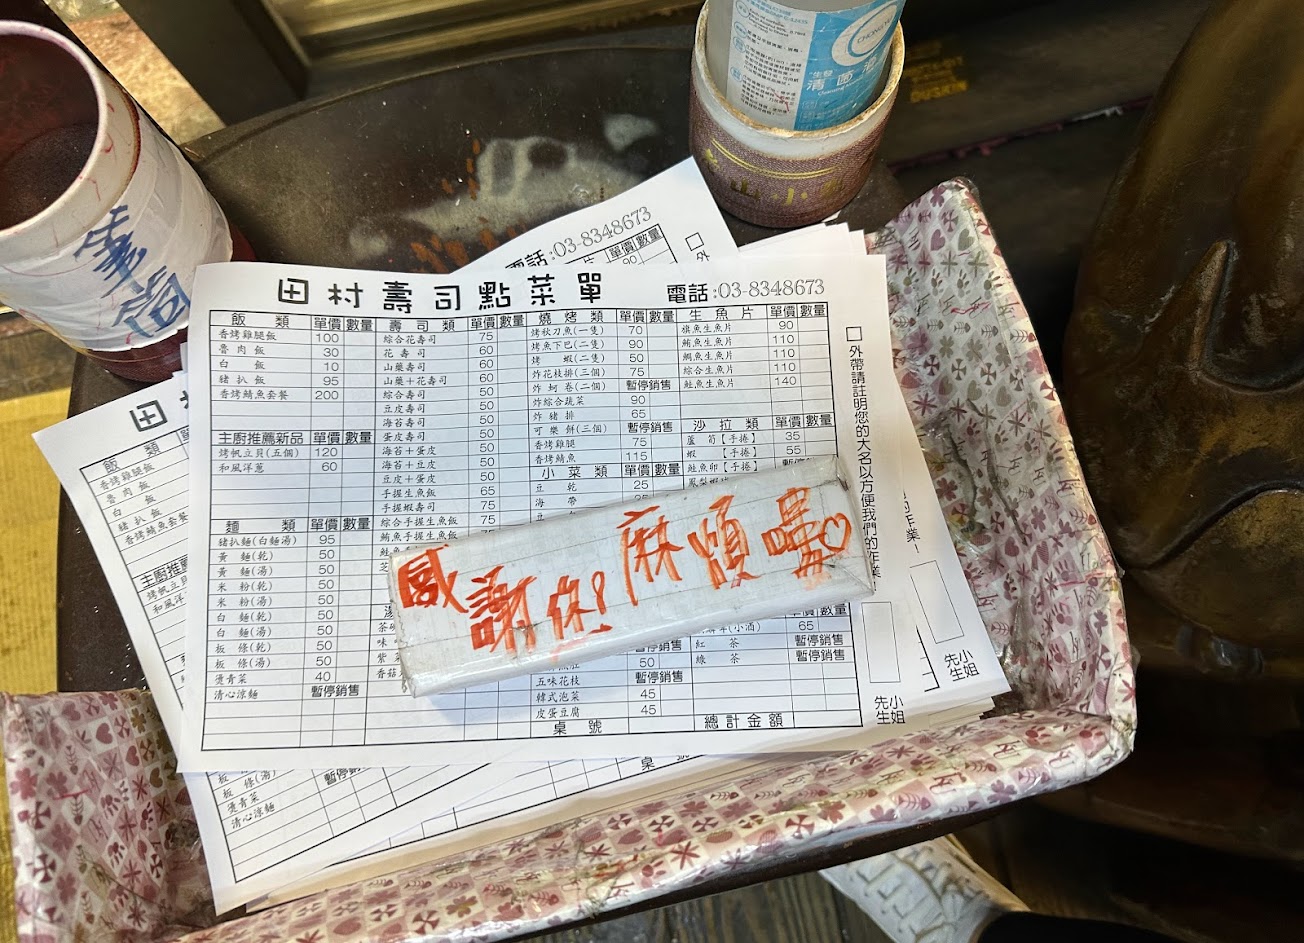 田村壽司點菜單
電話:03-8348673
飯 類 單價 數量
香烤雞腿飯 100
魯肉飯 30
白 飯 10
豬扒飯 95
香烤鯖魚套餐 200
主廚推薦新品 單價 數量
烤帆立貝(五個) 120
和風洋蔥 60
麵 類 單價 數量
豬扒麵(白麵湯) 95
黃 麵(乾) 50
黃 麵(湯) 50
米 粉(乾) 50
米 粉(湯) 50
白 麵(乾) 50
白 麵(湯) 50
板 條(乾) 50
板 條(湯) 50
燙青菜 40
清心涼麵 暫停銷售
壽司類 單價 數量
綜合花壽司 75
花壽司 60
山藥壽司 60
山藥+花壽司 60
綜合壽司 50
豆皮壽司 50
海苔壽司 50
蛋皮壽司 50
海苔+蛋皮 50
海苔+豆皮 50
豆皮+蛋皮 50
手握生魚飯 65
手握蝦壽司 50
綜合手握生魚飯 75
鮪魚手握生魚飯
燒烤類 單價 數量
烤秋刀魚(一隻) 70
烤魚下巴(二隻) 90
烤 蝦(二隻) 50
炸花枝排(三個) 75
炸蚵卷(二個) 暫停銷售
炸綜合蔬菜 90
炸豬排 65
可樂餅(三個) 暫停銷售
香烤雞腿 75
香烤鯖魚 115
小菜類 單價 數量
豆 乾 25
海 帶 25
50
五味花枝 暫停銷售
韓式泡菜 45
皮蛋豆腐 45
桌 號
生魚片 單價 數量
旗魚生魚片 90
鮪魚生魚片 110
鯛魚生魚片 110
綜合生魚片 110
鮭魚生魚片 140
沙拉類 單價 數量
蘆筍【手捲】 35
蝦 【手捲】 55
鮭魚卵【手捲】 暫停銷售
單價 數量
65
紅 茶 暫停銷售
綠 茶 暫停銷售
總計金額
外帶請註明您的大名以方便我們的作業
小姐
先生
感謝您!麻煩嘍♡
筆筒
電話:03-8348673
單價 數量
90
的作業!
小姐
先生
飯 類
香烤雞腿飯
魯肉飯
白 飯
豬扒飯
香烤鯖魚套餐
主廚推薦
烤帆立貝
和風洋
板 條(湯)
燙青菜
清心涼麵
暫停銷售
桌 號
山小
CHONGYU
生發
清菌液
DUSKIN